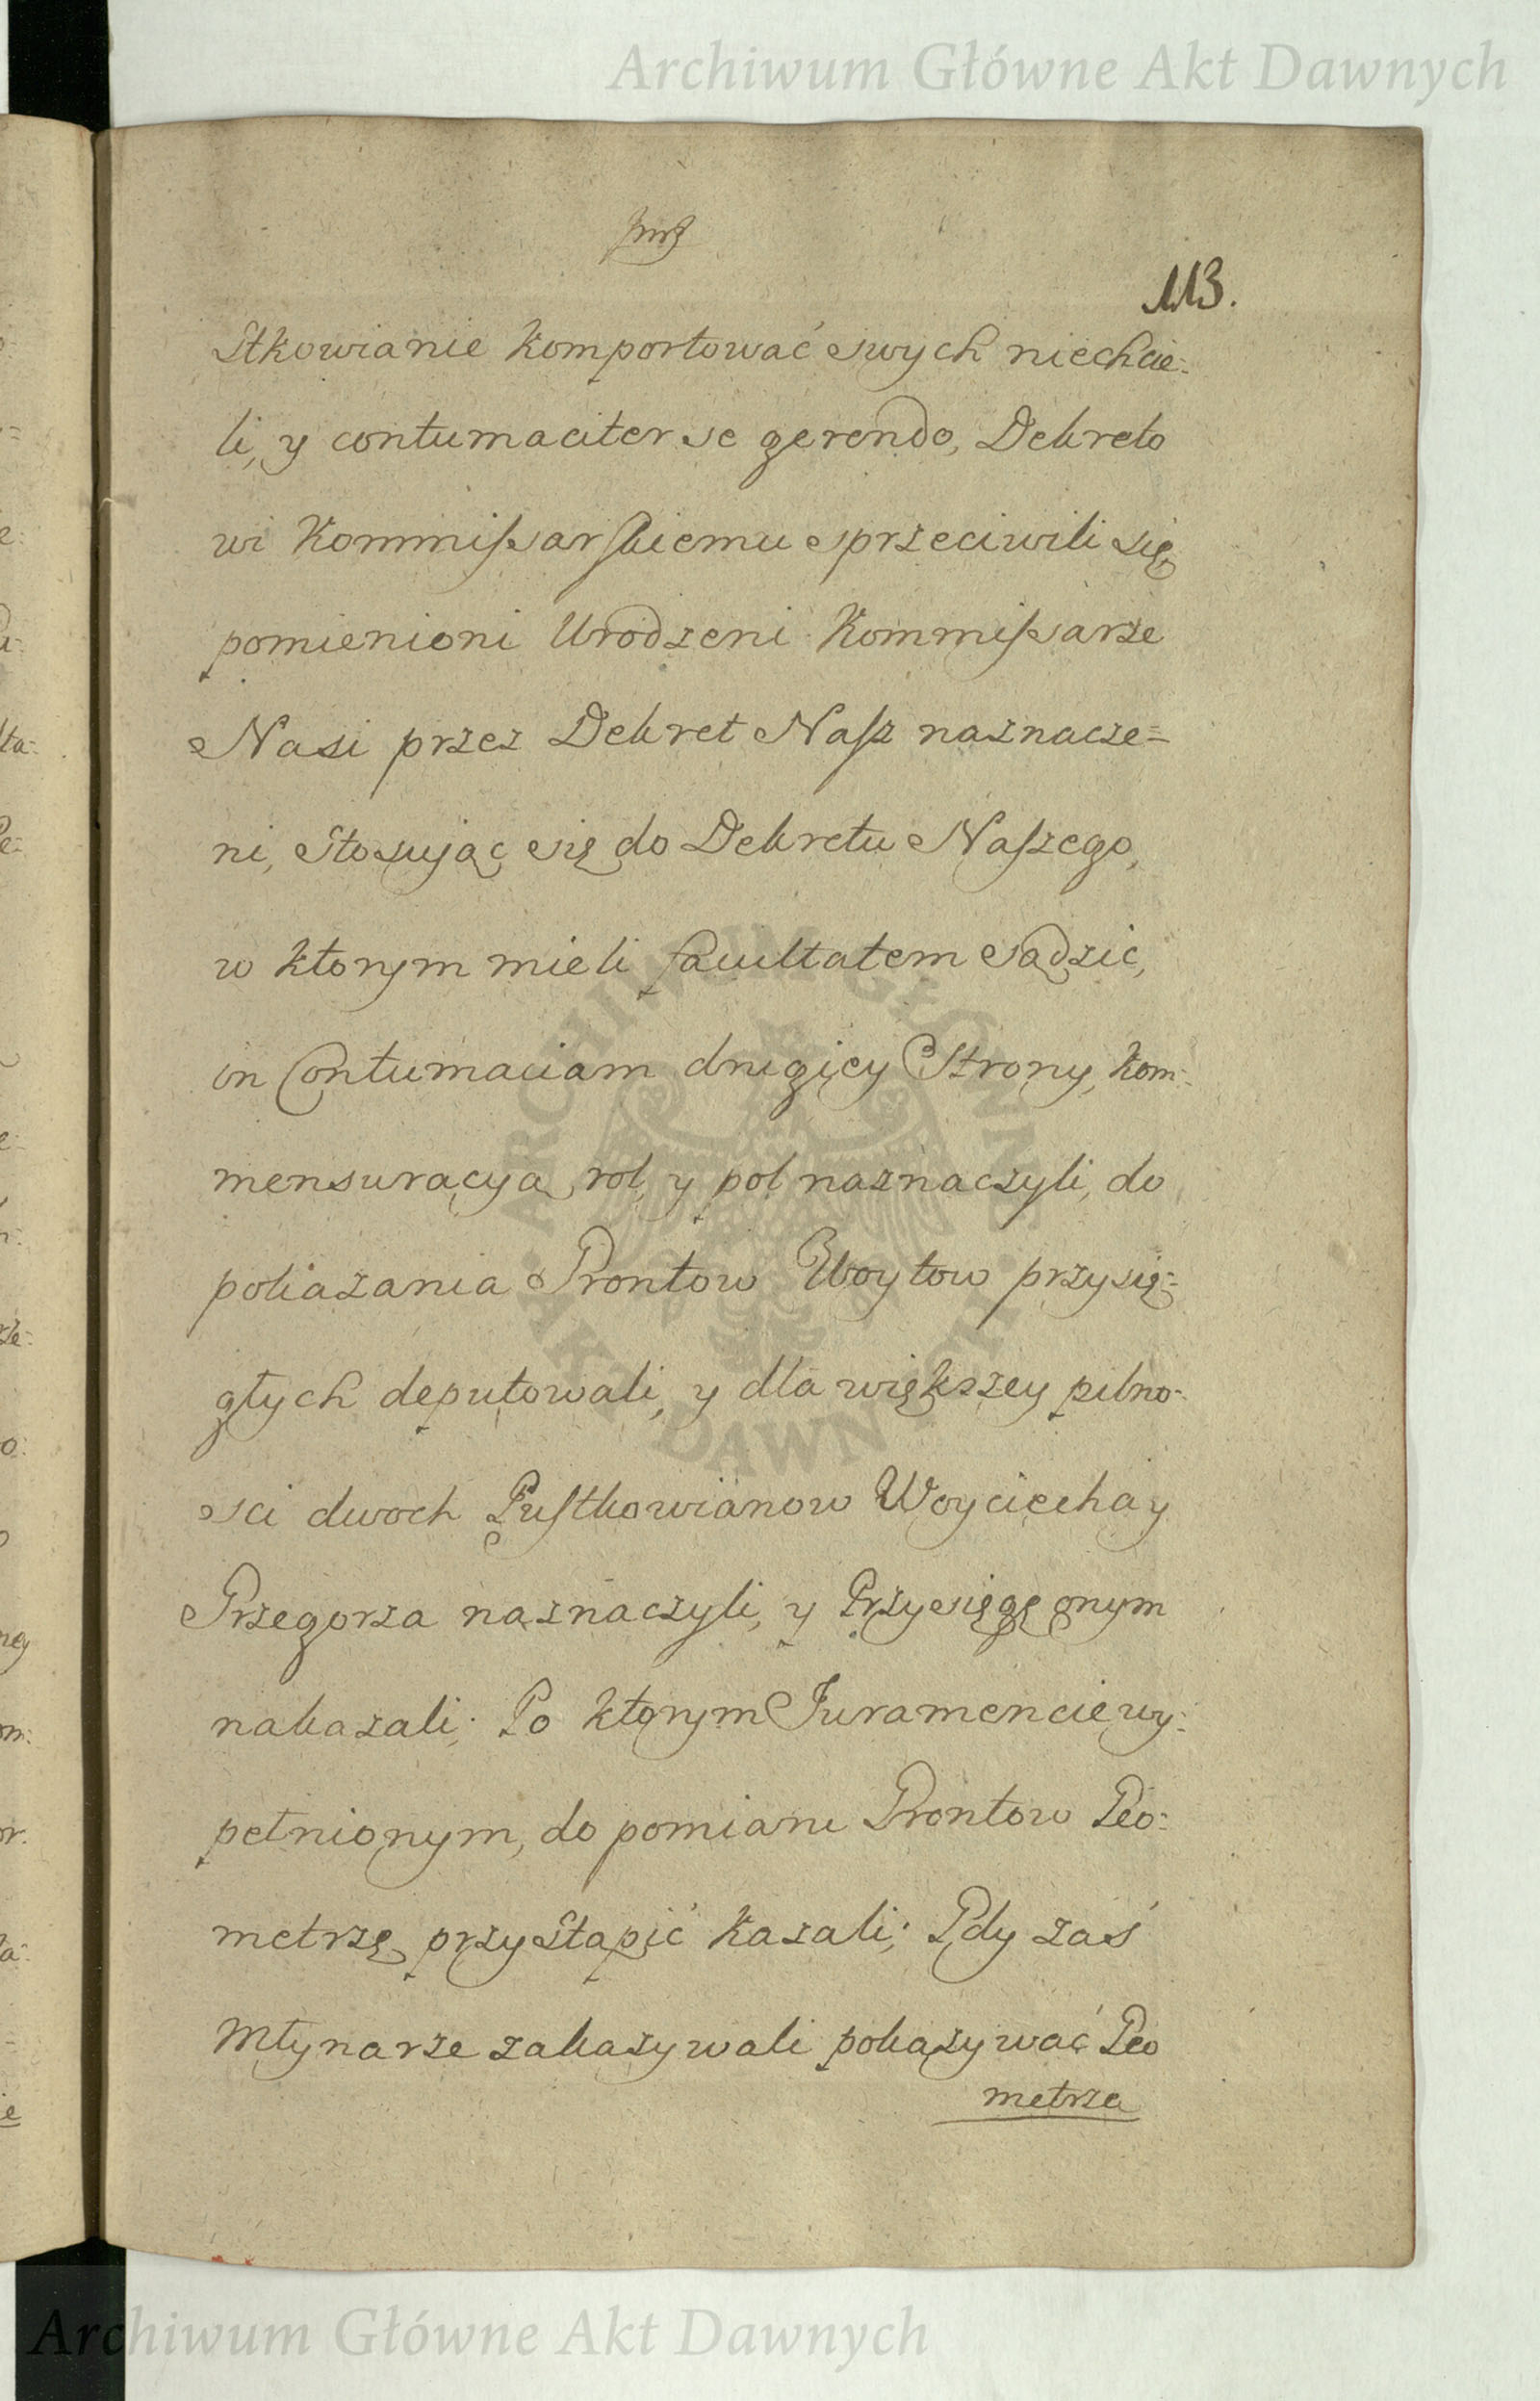 Archiwum Główne Akt Dawnych
113.
stkowianie komportować swych niechcie-
li, y contumaciter se gerendo, Dekreto
wi Kommissarskiemu sprzeciwili się
pomienioni Urodzeni Kommissarze
Nasi przez Dekret Nasz naznacze=
ni, stosując się do Dekretu Naszego,
w ktorym mieli facultatem sądzic,
in Contumaciam drugiey Strony, kom-
mensuracyą rol, y pol naznaczyli, do
pokazania Grontow Woytow przysię-
głych deputowali, y dla większey pilno-
sci dwoch Pustkowianow Woyciecha y
Grzegorza naznaczyli, y Przysięgę onym
nakazali; Po ktorym Juramencie wy-
pełnionym, do pomiaru Grontow Geo-
metrze przystąpić kazali; Gdy zaś
Młynarze zakazywali pokazywać Geo
metrza
ARCHIWUM GŁÓWNE AKT DAWNYCH
Archiwum Główne Akt Dawnych